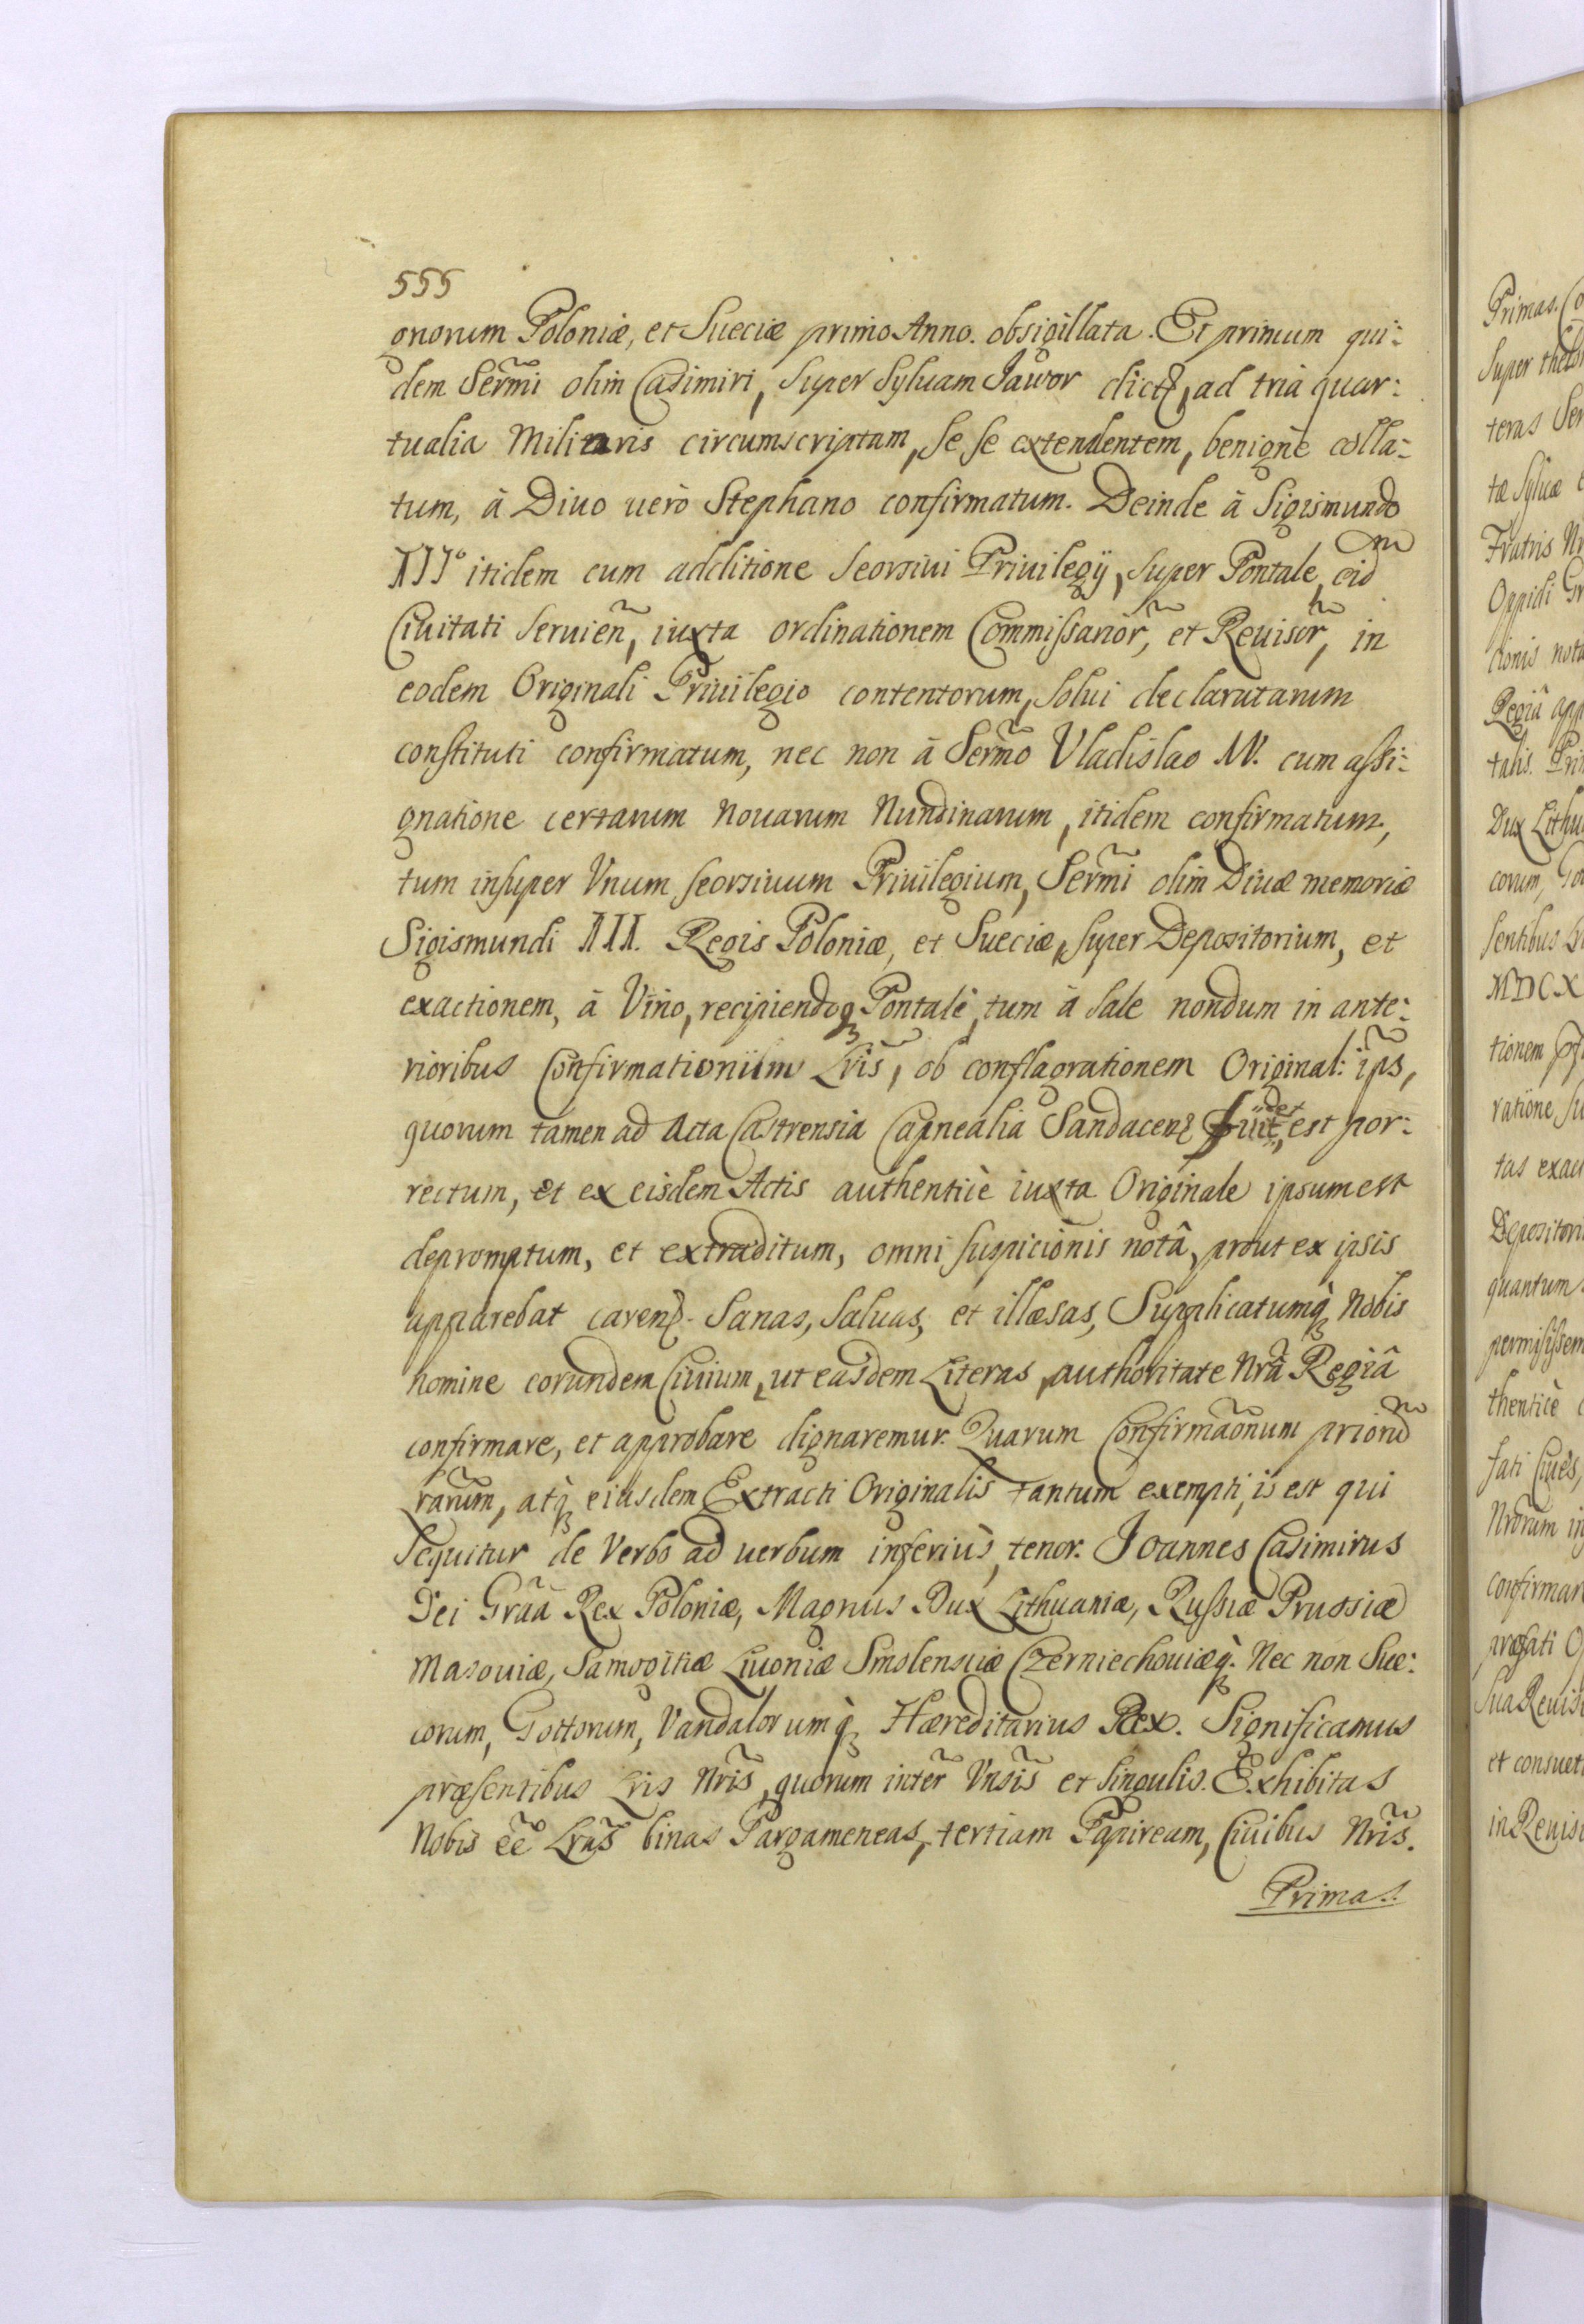 555
gnorum Poloniæ, et Sueciæ primo Anno. obsigillata. Et primum qui:
dem Serm̃i olim Casimiri, super Syluam Jawor dict, ad tria quar:
tualia Militaris circumscriptam, se se extendentem, benignè colla:
tum, à Diuo uerò Stephano confirmatum. Deinde à Sigismundo
III° itidem cum additione seorsiui Priuilegÿ, super Pontale, eid̃
Ciuitati seruieñ, iuxta ordinationem Commissarior̃, et Reuisor̃, in
eodem Originali Priuilegio contentorum, solui declaratarum
constituti confirmatum, nec non à Serm̃o Vladislao IV. cum assi:
gnatione certarum nouarum Nundinarum, itidem confirmatum,
tum insuper Vnum seorsiuum Priuilegium, Serm̃i olim Diuæ memoriæ
Sigismundi III. Regis Poloniæ, et Sueciæ, super Depositorium, et
exactionem, à Vino, recipiendoq Pontalè, tum à sale nondum in ante:
rioribus Confirmationum Lr̃is, ob conflagrationem Original: ip̃s,
quorum tamen ad Acta Castrensia Capnealia Sandacen est por:
rectum, et ex eisdem Actis authenticè iuxta Originale ipsum est
depromptum, et extraditum, omni suspicionis notâ, prout ex ipsis
apparebat caren. Sanas, saluas, et illæsas, Supplicatumq̀ Nobis
nomine eorundem Ciuium, ut easdem Literas, authoritate Nr̃a Regiâ
confirmare, et approbare dignaremur. Quarum Confirmãonum priorũ
rarum, atq̀ eiusdem Extracti Originalis tantum exempti, is est qui
sequitur de Verbo ad uerbum inferiùs, tenor. Joannes Casimirus
Dei Grãa Rex Poloniæ, Magnus Dux Lithuaniæ, Russiæ Prussiæ
Masouiæ, Samogitiæ Liuoniæ Smolensciæ Czerniechouiæq̀. Nec non Sue:
corum, Gottorum, Vandalorumq̀ Hæreditarius Rex. Significamus
præsentibus Lris Nr̃is, quorum inter̃ Vnsĩs et singulis. Exhibitas
Nobis eẽ Lrãs binas Pargameneas, tertiam Papiream, Ciuibus Nr̃is.
Primas.